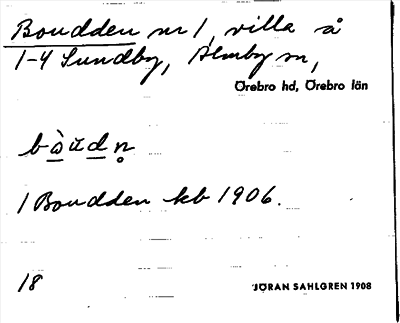 Boudden nr 1, villa å
1-4 Sundby, Almby sn,
Örebro hd, Örebro län
bàŭdn̥
1 Boudden kb 1906.
18
JÖRAN SAHLGREN 1908